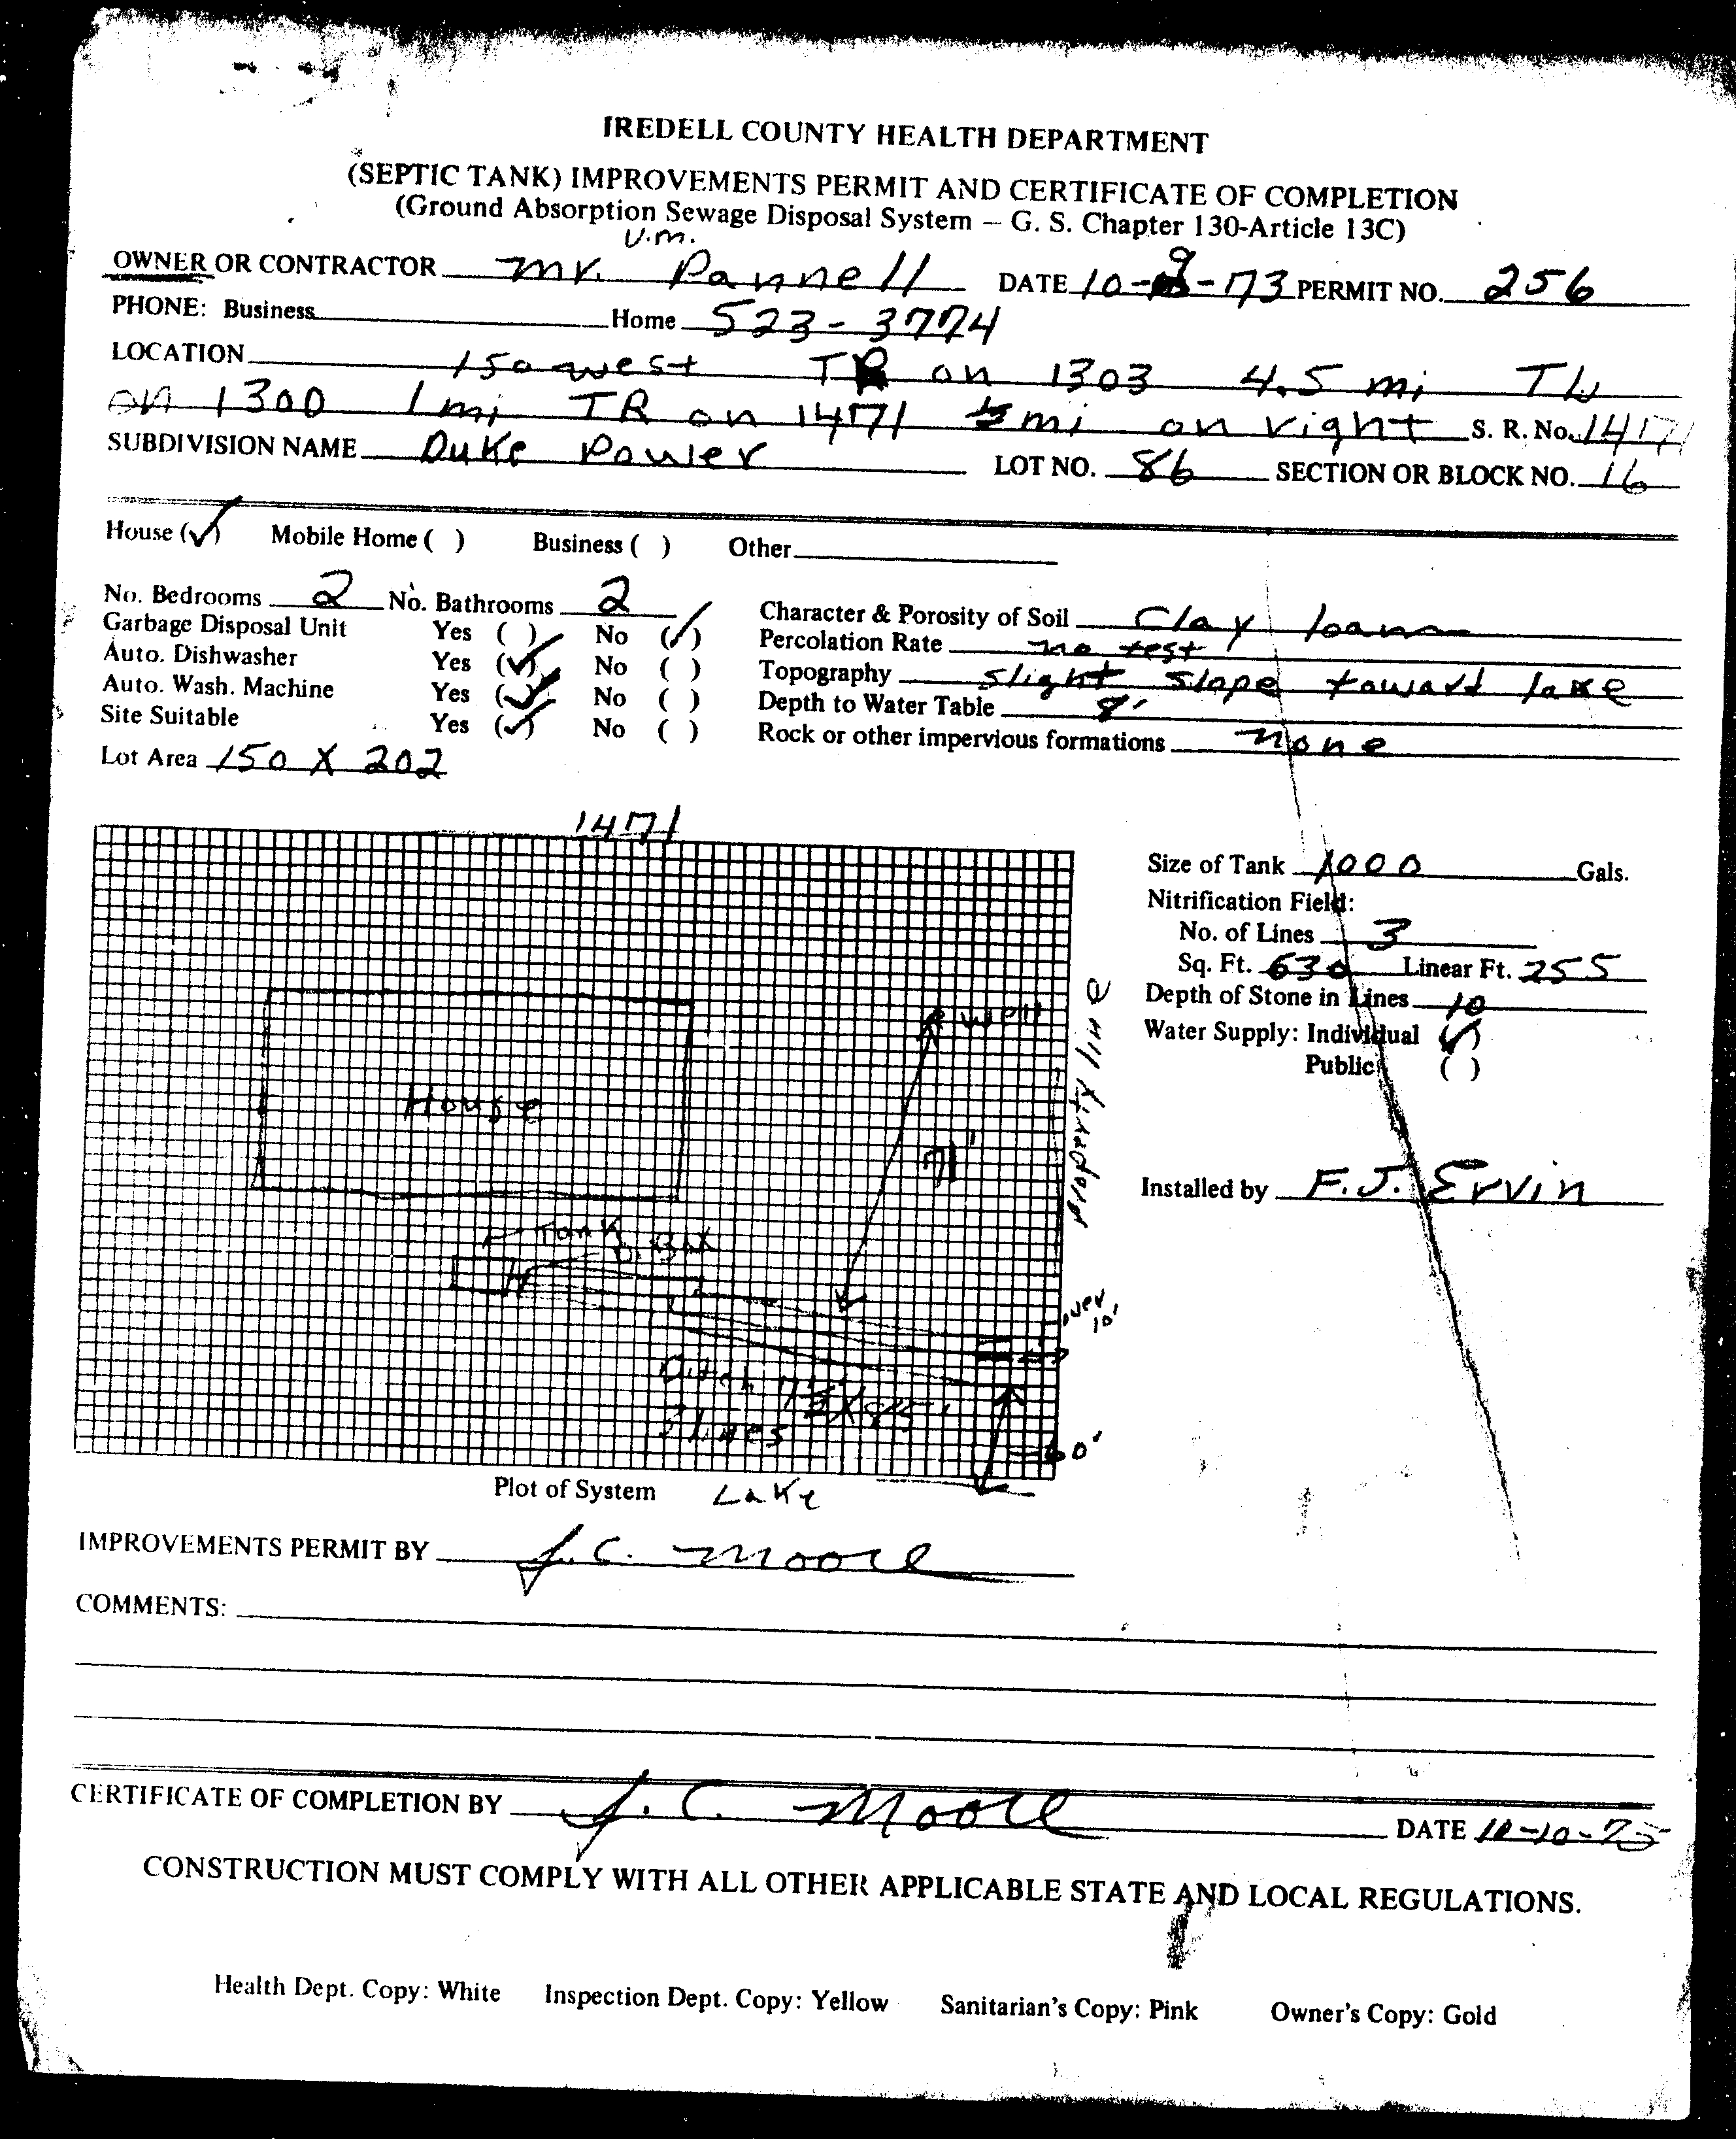 IREDELL COUNTY HEALTH DEPARTMENT
(SEPTIC TANK) IMPROVEMENTS PERMIT AND CERTIFICATE OF COMPLETION
(Ground Absorption Sewage Disposal System – G. S. Chapter 130-Article 13C)
V.M.
OWNER OR CONTRACTOR Mr. Pannell DATE 10-9-73 PERMIT NO. 256
PHONE: Business Home 523-3774
LOCATION 150 west TR on 1303 4.5 mi TL
on 1300 1 mi TR on 1471 mi on right S. R. No. 1471
SUBDIVISION NAME Duke Power LOT NO. 86 SECTION OR BLOCK NO. 16
House (✓) Mobile Home ( ) Business ( ) Other
No. Bedrooms 2 No. Bathrooms 2 Character & Porosity of Soil Clay loam
Garbage Disposal Unit Yes ( ) No (✓) Percolation Rate no test
Auto. Dishwasher Yes (✓) No ( ) Topography slight slope toward lake
Auto. Wash. Machine Yes (✓) No ( ) Depth to Water Table 8'
Site Suitable Yes (✓) No ( ) Rock or other impervious formations none
Lot Area 150 X 202
1471
Size of Tank 1000 Gals.
Nitrification Field:
No. of Lines 3
Sq. Ft. 630 Linear Ft. 255
Depth of Stone in Lines 10
Water Supply: Individual (✓)
Public ( )
Installed by F.J. Ervin
well
property line
House
71'
Tank
D. Box
over
10'
Ditch X 85'
3 Lines
60'
Plot of System Lake
IMPROVEMENTS PERMIT BY J. C. Moore
COMMENTS:
CERTIFICATE OF COMPLETION BY J. C. Moore DATE 10-10-75
CONSTRUCTION MUST COMPLY WITH ALL OTHER APPLICABLE STATE AND LOCAL REGULATIONS.
Health Dept. Copy: White Inspection Dept. Copy: Yellow Sanitarian's Copy: Pink Owner's Copy: Gold